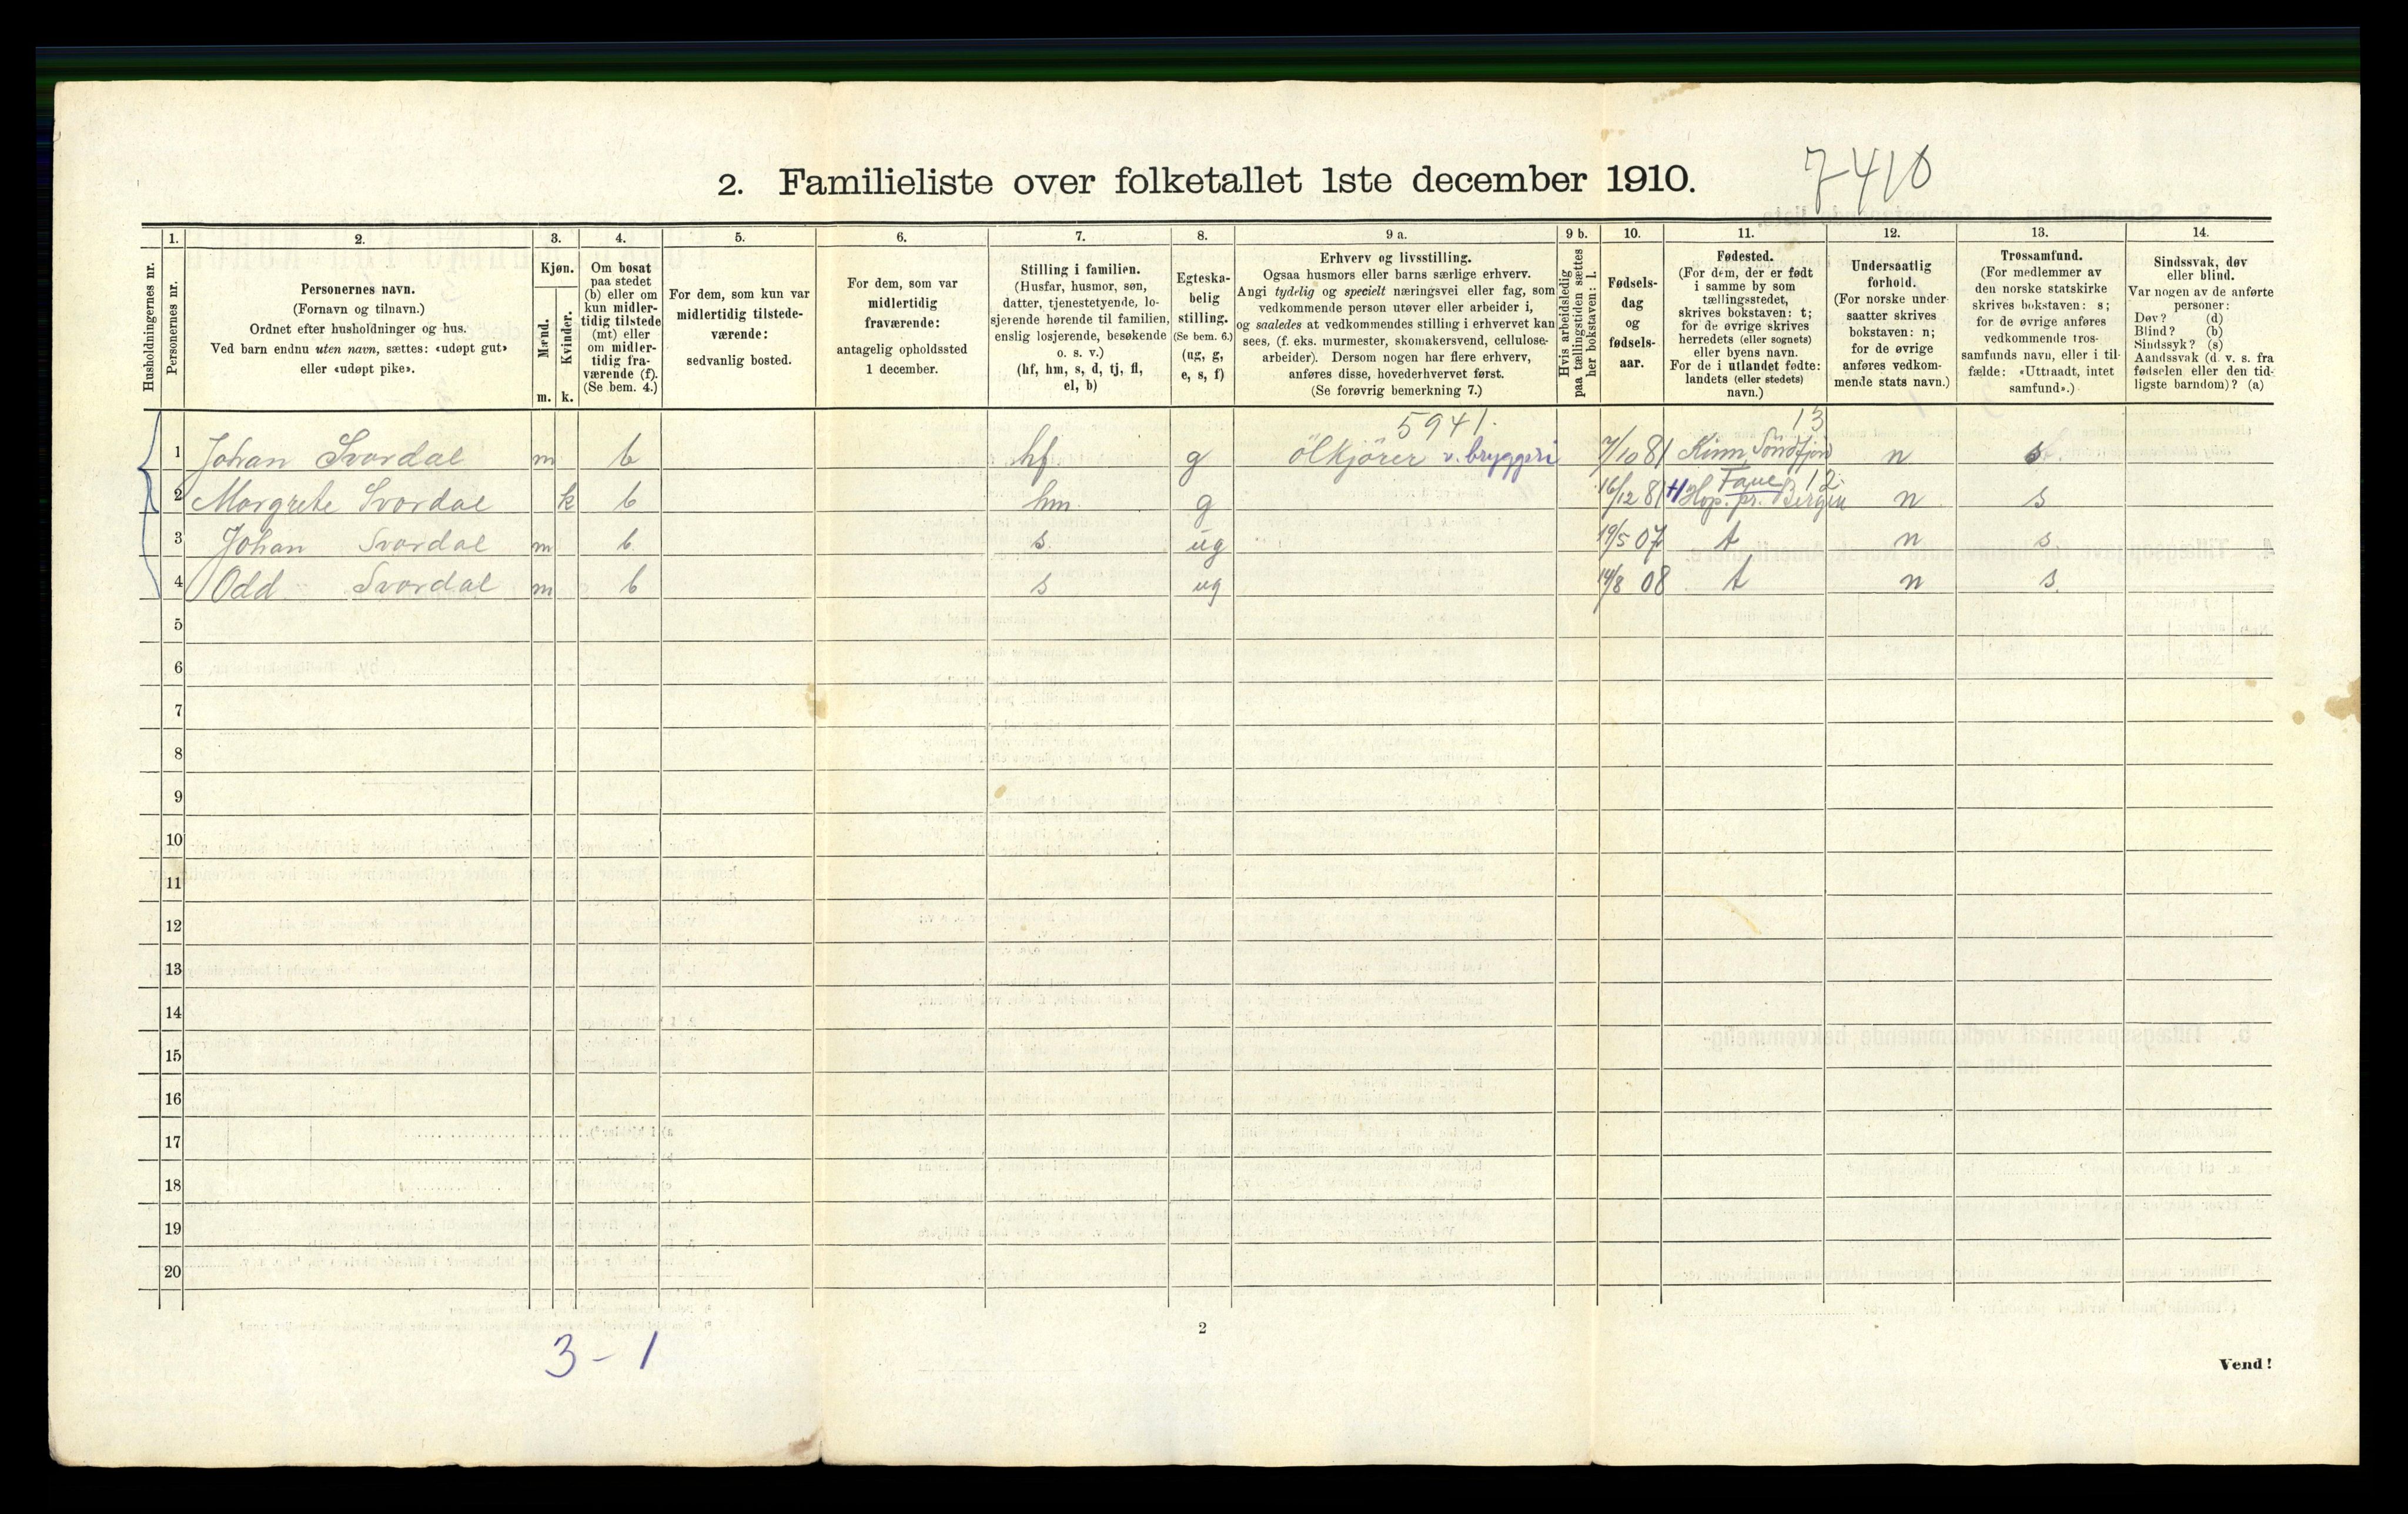 2. Familieliste over folketallet 1ste december 1910.
7410
Husholdningernes nr.
1.
Personernes nr.
2.
Personernes navn.
(Fornavn og tilnavn.)
Ordnet efter husholdninger og hus.
Ved barn endnu uten navn, sættes: «udøpt gut»
eller «udøpt pike».
3.
Kjøn.
Mænd.
Kvinder.
m.
k.
4.
Om bosat
paa stedet
(b) eller om
kun midler-
tidig tilstede
(mt) eller
om midler-
tidig fra-
værende (f).
(Se bem. 4.)
5.
For dem, som kun var
midlertidig tilstede-
værende:
sedvanlig bosted.
6.
For dem, som var
midlertidig
fraværende:
antagelig opholdssted
1 december.
7.
Stilling i familien.
(Husfar, husmor, søn,
datter, tjenestetyende, lo-
sjerende hørende til familien,
enslig losjerende, besøkende
o. s. v.)
(hf, hm, s, d, tj, fl,
el, b)
8.
Egteska-
belig
stilling.
(Se bem. 6.)
(ug, g,
e, s, f)
9 a.
Erhverv og livsstilling.
Ogsaa husmors eller barns særlige erhverv.
Angi tydelig og specielt næringsvei eller fag, som
vedkommende person utøver eller arbeider i,
og saaledes at vedkommendes stilling i erhvervet kan
sees, (f. eks. murmester, skomakersvend, cellulose-
arbeider). Dersom nogen har flere erhverv,
anføres disse, hovederhvervet først.
(Se forøvrig bemerkning 7.)
9 b.
Hvis arbeidsledig
paa tællingstiden sættes
her bokstaven: l.
10.
Fødsels-
dag
og
fødsels-
aar.
11.
Fødested.
(For dem, der er født
i samme by som
tællingsstedet,
skrives bokstaven: t;
for de øvrige skrives
herredets (eller sognets)
eller byens navn.
For de i utlandet fødte:
landets (eller stedets)
navn.)
12.
Undersaatlig
forhold.
(For norske under-
saatter skrives
bokstaven: n;
for de øvrige
anføres vedkom-
mende stats navn.)
13.
Trossamfund.
(For medlemmer av
den norske statskirke
skrives bokstaven: s;
for de øvrige anføres
vedkommende tros-
samfunds navn, eller i til-
fælde: «Uttraadt, intet
samfund».)
14.
Sindssvak, døv
eller blind.
Var nogen av de anførte
personer:
Døv? (d)
Blind? (b)
Sindssyk? (s)
Aandssvak (d. v. s. fra
fødselen eller den tid-
ligste barndom)? (a)
5941. 13
1 Johan Svardal m b hf g ölkjörer v. bryggeri 7/10 81 Kinn, Söndfjord n s
Fane 12
2 Margrete Svardal k b hm. g 16/12 81 Hop. pr. Bergen n s
3 Johan Svardal m b s ug 19/5 07 t n s
4 Odd Svardal m b s ug 14/8 08 t n s.
5
6
7
8
9
10
11
12
13
14
15
16
17
18
19
20
3 - 1
2
Vend!